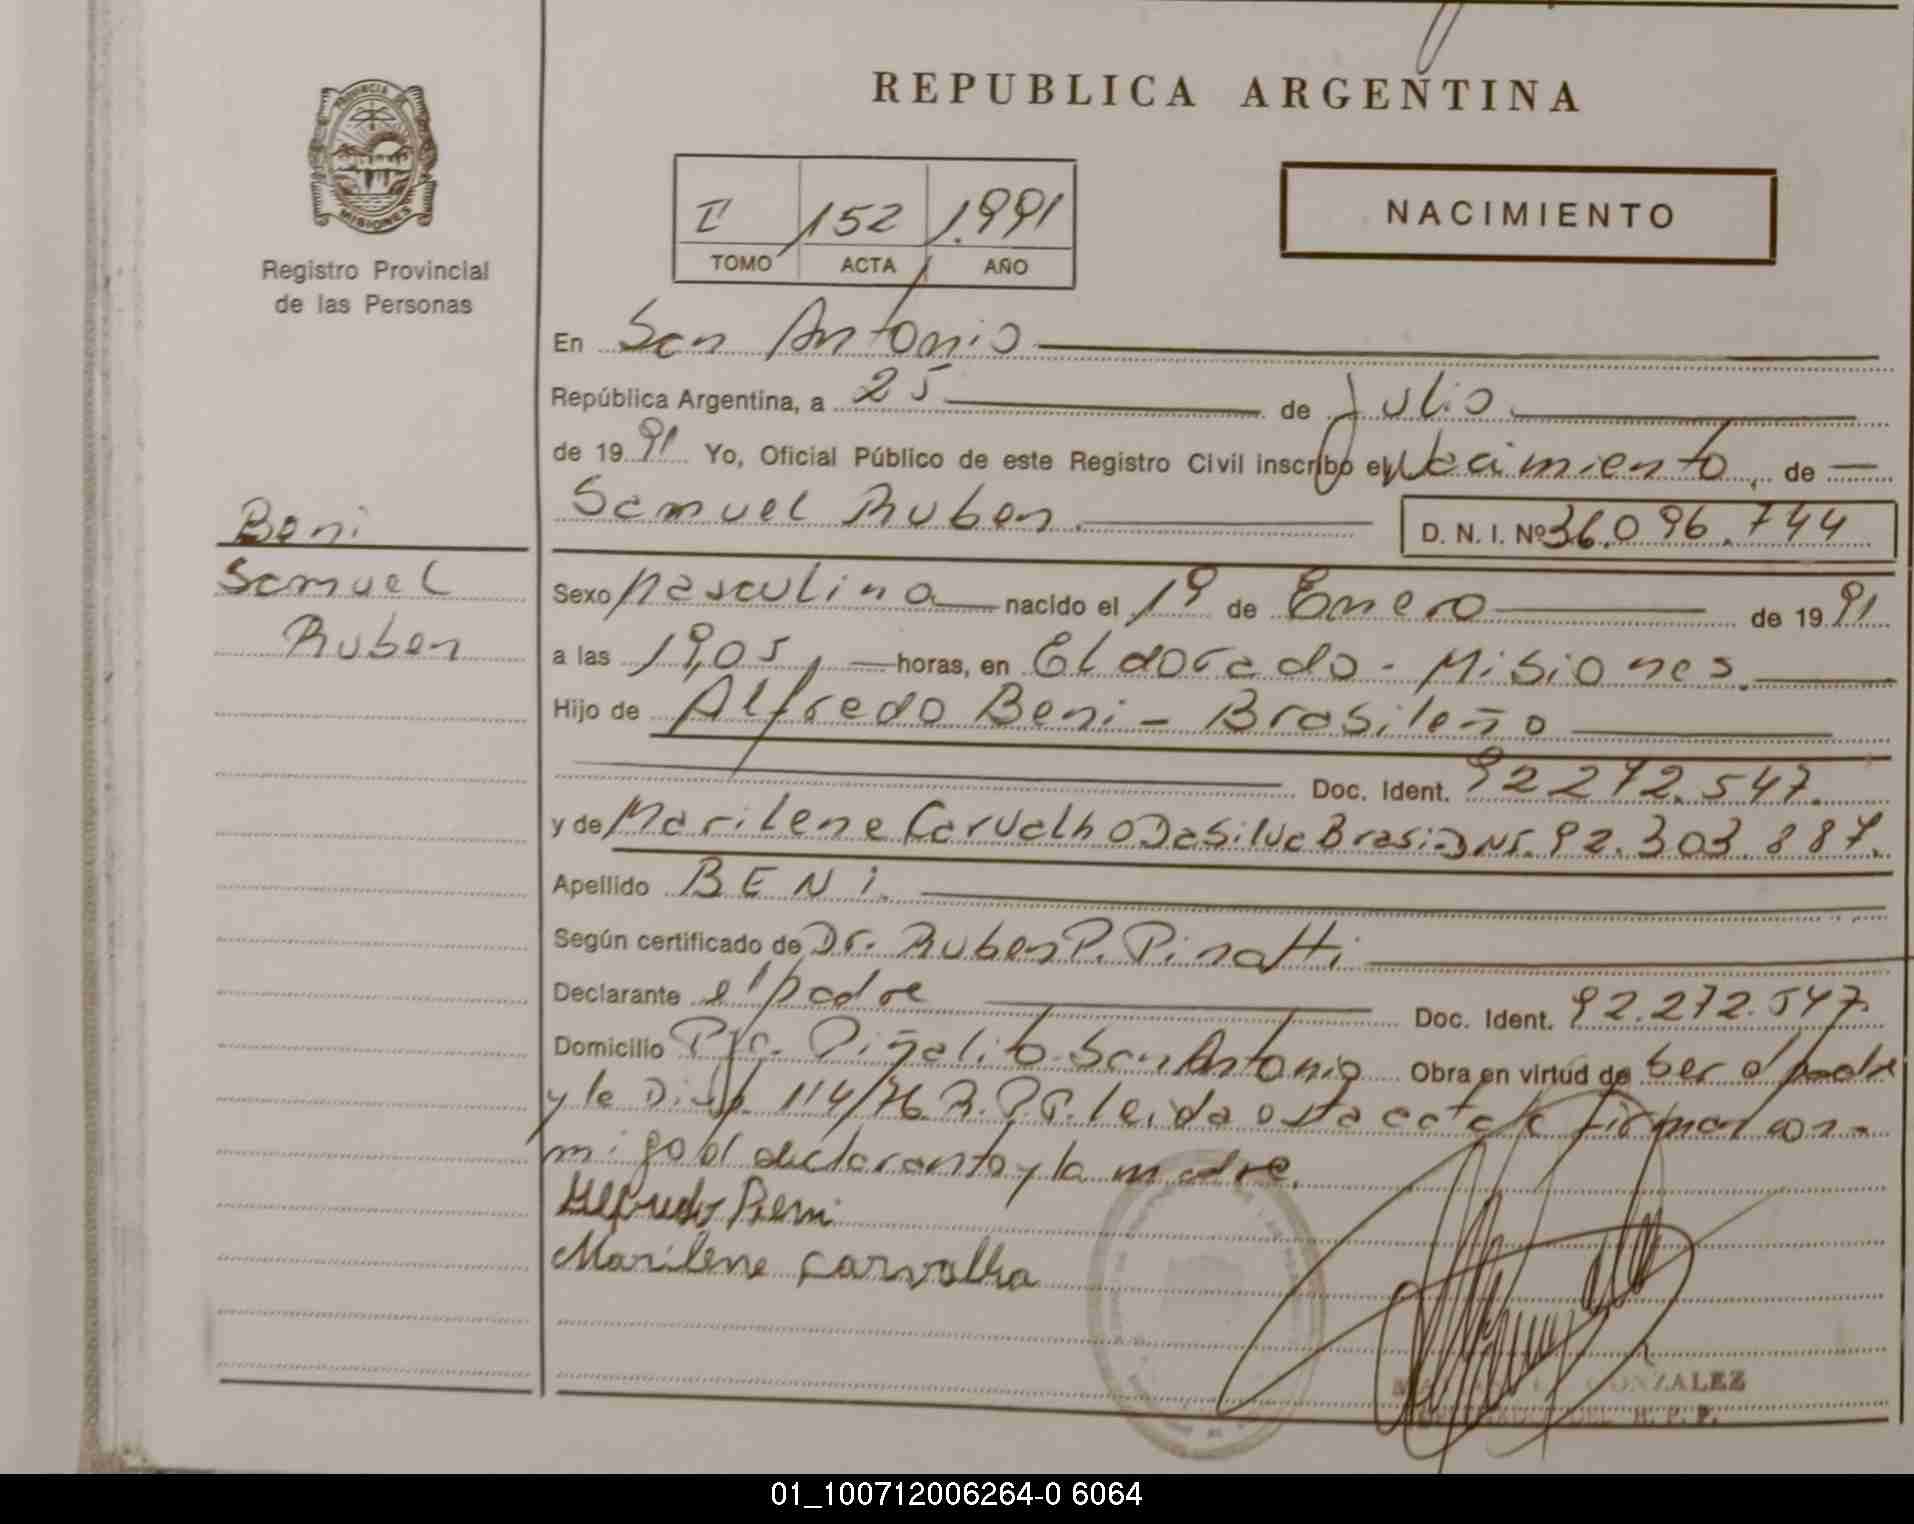 REPUBLICA ARGENTINA
PROVINCIA DE
MISIONES
Registro Provincial
de las Personas
I 152 1.991
TOMO ACTA AÑO
NACIMIENTO
En San Antonio
República Argentina, a 25 de Julio
de 1991 Yo, Oficial Público de este Registro Civil inscribo el Nacimiento de
Samuel Ruben. D. N. I. Nº 36.096.744
Beni
Samuel
Ruben
Sexo Masculino nacido el 1º de Enero de 1991
a las 19,05 horas, en Eldorado - Misiones.
Hijo de Alfredo Beni - Brasileño
Doc. Ident. 92272.547.
y de Marilene Carvalho Da Silva Brasi. DNI. 92.303.887.
Apellido BENI.
Según certificado de Dr. Ruben P. Pinatti
Declarante el padre Doc. Ident. 92.272.547.
Domicilio Pje. Piñalito San Antonio Obra en virtud de ser el padre
y la Disp. 114/76 R.P.P. leida esta acta la firman con-
migo el declarante y la madre.
Alfredo Beni
Marilene Carvalho
GONZALEZ
DEL R. P. P.
01_100712006264-0 6064